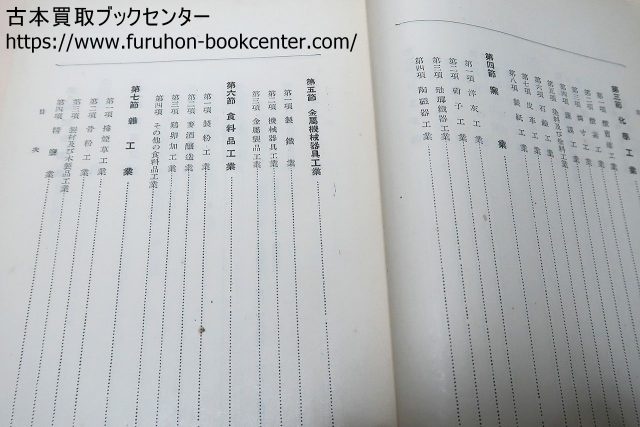 古本買取ブックセンター
https://www.furuhon-bookcenter.com/
第三節 化學工業
第七項 皮革工業
第八項 製紙工業
第四節 窯業
第一項 洋灰工業
第二項 硝子工業
第三項 琺瑯鐵器工業
第四項 陶磁器工業
第五節 金屬機械器具工業
第一項 製鐵業
第二項 機械器具工業
第三項 金屬製品工業
第六節 食料品工業
第一項 製粉工業
第二項 麥酒釀造業
第三項 鷄卵加工業
第四項 その他の食料品工業
第七節 雜工業
第一項 捲煙草工業
第二項 骨粉工業
第三項 製材及び木製品工業
第四項 精鹽業
目次